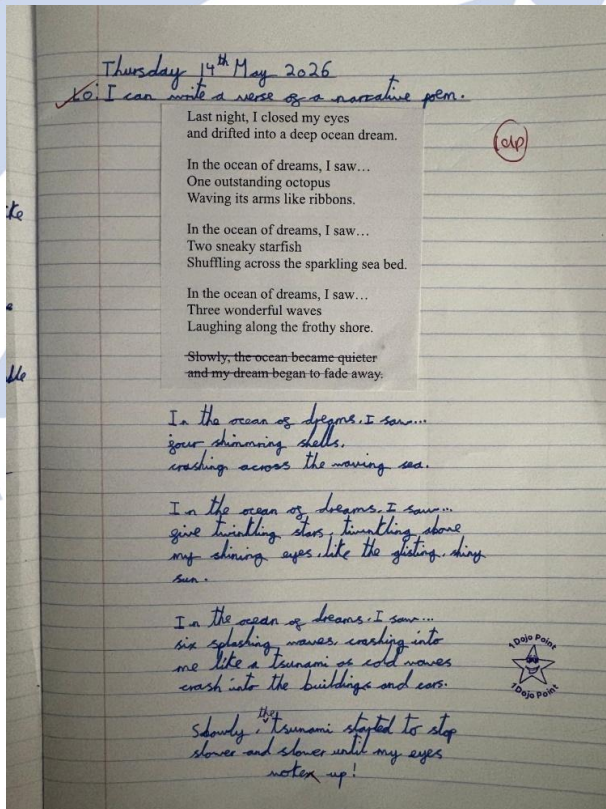 Thursday 14th May 2026
LO: I can write a verse of a narrative poem.
1dp
Last night, I closed my eyes
and drifted into a deep ocean dream.
In the ocean of dreams, I saw…
One outstanding octopus
Waving its arms like ribbons.
In the ocean of dreams, I saw…
Two sneaky starfish
Shuffling across the sparkling sea bed.
In the ocean of dreams, I saw…
Three wonderful waves
Laughing along the frothy shore.
Slowly, the ocean became quieter
and my dream began to fade away.
In the ocean of dreams, I saw...
four shimmring shells,
crashing across the waving sea.
In the ocean of dreams, I saw...
five twinkling stars, twinkling above
my shining eyes, like the glisting, shiny
sun.
In the ocean of dreams, I saw...
six splashing waves crashing into
me like a tsunami as cold waves
crash into the buildings and cars.
Slowly, the tsunami started to stop
slower and slower until my eyes
up!
1 Dojo Point
1 Dojo Point